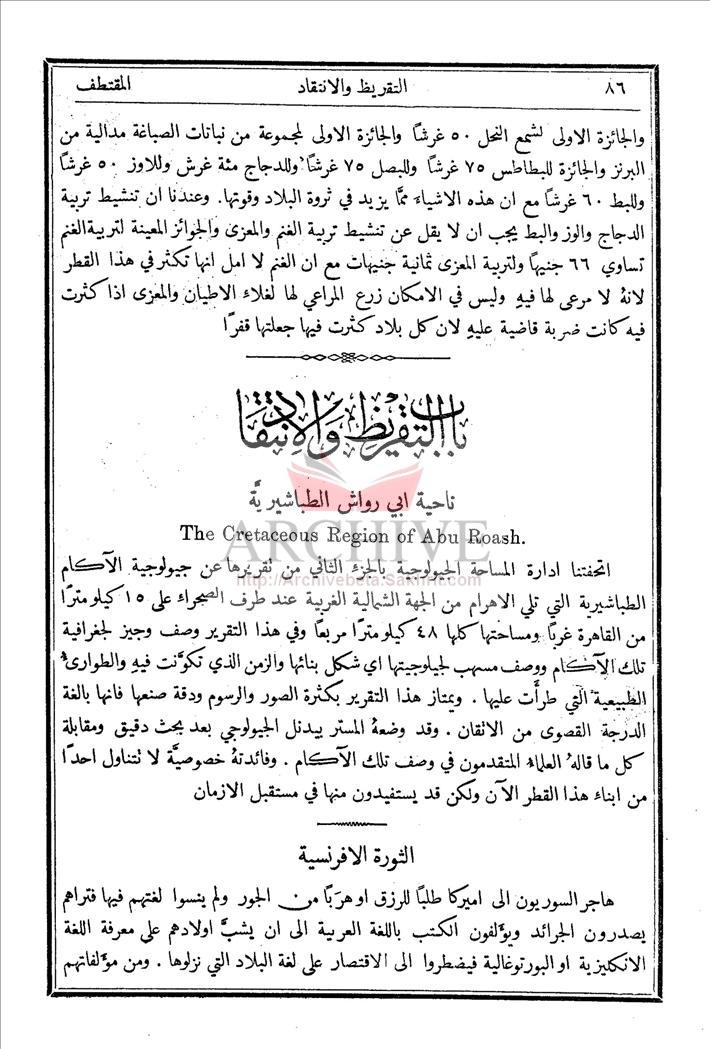 ٨٦ التقريظ والانتقاد المقتطف
والجائزة الاولى لشمع النحل ٥٠ غرشًا والجائزة الاولى لمجموعة من نباتات الصباغة مدالية من
البرنز والجائزة للبطاطس ٧٥ غرشًا وللبصل ٧٥ غرشًا وللدجاج مئة غرش وللاوز ٥٠ غرشًا
وللبط ٦٠ غرشًا مع ان هذه الاشياء ممَّا يزيد في ثروة البلاد وقوتها. وعندنا ان تنشيط تربية
الدجاج والوز والبط يجب ان لا يقل عن تنشيط تربية الغنم والمعزى والجوائز المعينة لتربية الغنم
تساوي ٦٦ جنيهًا ولتربية المعزى ثمانية جنيهات مع ان الغنم لا امل انها تكثر في هذا القطر
لانهُ لا مرعى لها فيهِ وليس في الامكان زرع المراعي لها لغلاء الاطيان والمعزى اذا كثرت
فيه كانت ضربة قاضية عليهِ لان كل بلاد كثرت فيها جعلتها قفرًا
باب التقريظ والانتقاد
ناحية ابي رواش الطباشيريَّة
The Cretaceous Region of Abu Roash.
ARCHIVE
اتحفتنا ادارة المساحة الجيولوجية بالجزء الثاني من تقريرها عن جيولوجية الآكام
http://Archivebeta.Sakhrit.com
الطباشيرية التي تلي الاهرام من الجهة الشمالية الغربية عند طرف الصحراء على ١٥ كيلومترًا
من القاهرة غربًا ومساحتها كلها ٤٨ كيلومترًا مربعًا وفي هذا التقرير وصف وجيز لجغرافية
تلك الآكام ووصف مسهب لجيلوجيتها اي شكل بنائها والزمن الذي تكوَّنت فيهِ والطوارىء
الطبيعية التي طرأَت عليها . ويمتاز هذا التقرير بكثرة الصور والرسوم ودقة صنعها فانها بالغة
الدرجة القصوى من الاتقان . وقد وضعهُ المستر بيدنل الجيولوجي بعد بحث دقيق ومقابلة
كل ما قالهُ العلماء المتقدمون في وصف تلك الآكام . وفائدتهُ خصوصيَّة لا تتناول احدًا
من ابناء هذا القطر الآن ولكن قد يستفيدون منها في مستقبل الازمان
الثورة الافرنسية
هاجر السوريون الى اميركا طلبًا للرزق او هربًا من الجور ولم ينسوا لغتهم فيها فتراهم
يصدرون الجرائد ويؤلفون الكتب باللغة العربية الى ان يشبَّ اولادهم على معرفة اللغة
الانكليزية او البورتوغالية فيضطروا الى الاقتصار على لغة البلاد التي نزلوها . ومن مؤلفاتهم